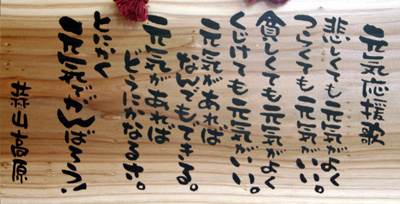 元気応援歌
悲しくても元気がよく
つらくても元気がいい。
貧しくても元気がよく
くじけても元気がいい。
元気があれば
なんでもできる。
元気があれば
どうにかなるさ。
とにかく
元気でがんばろう!
蒜山高原